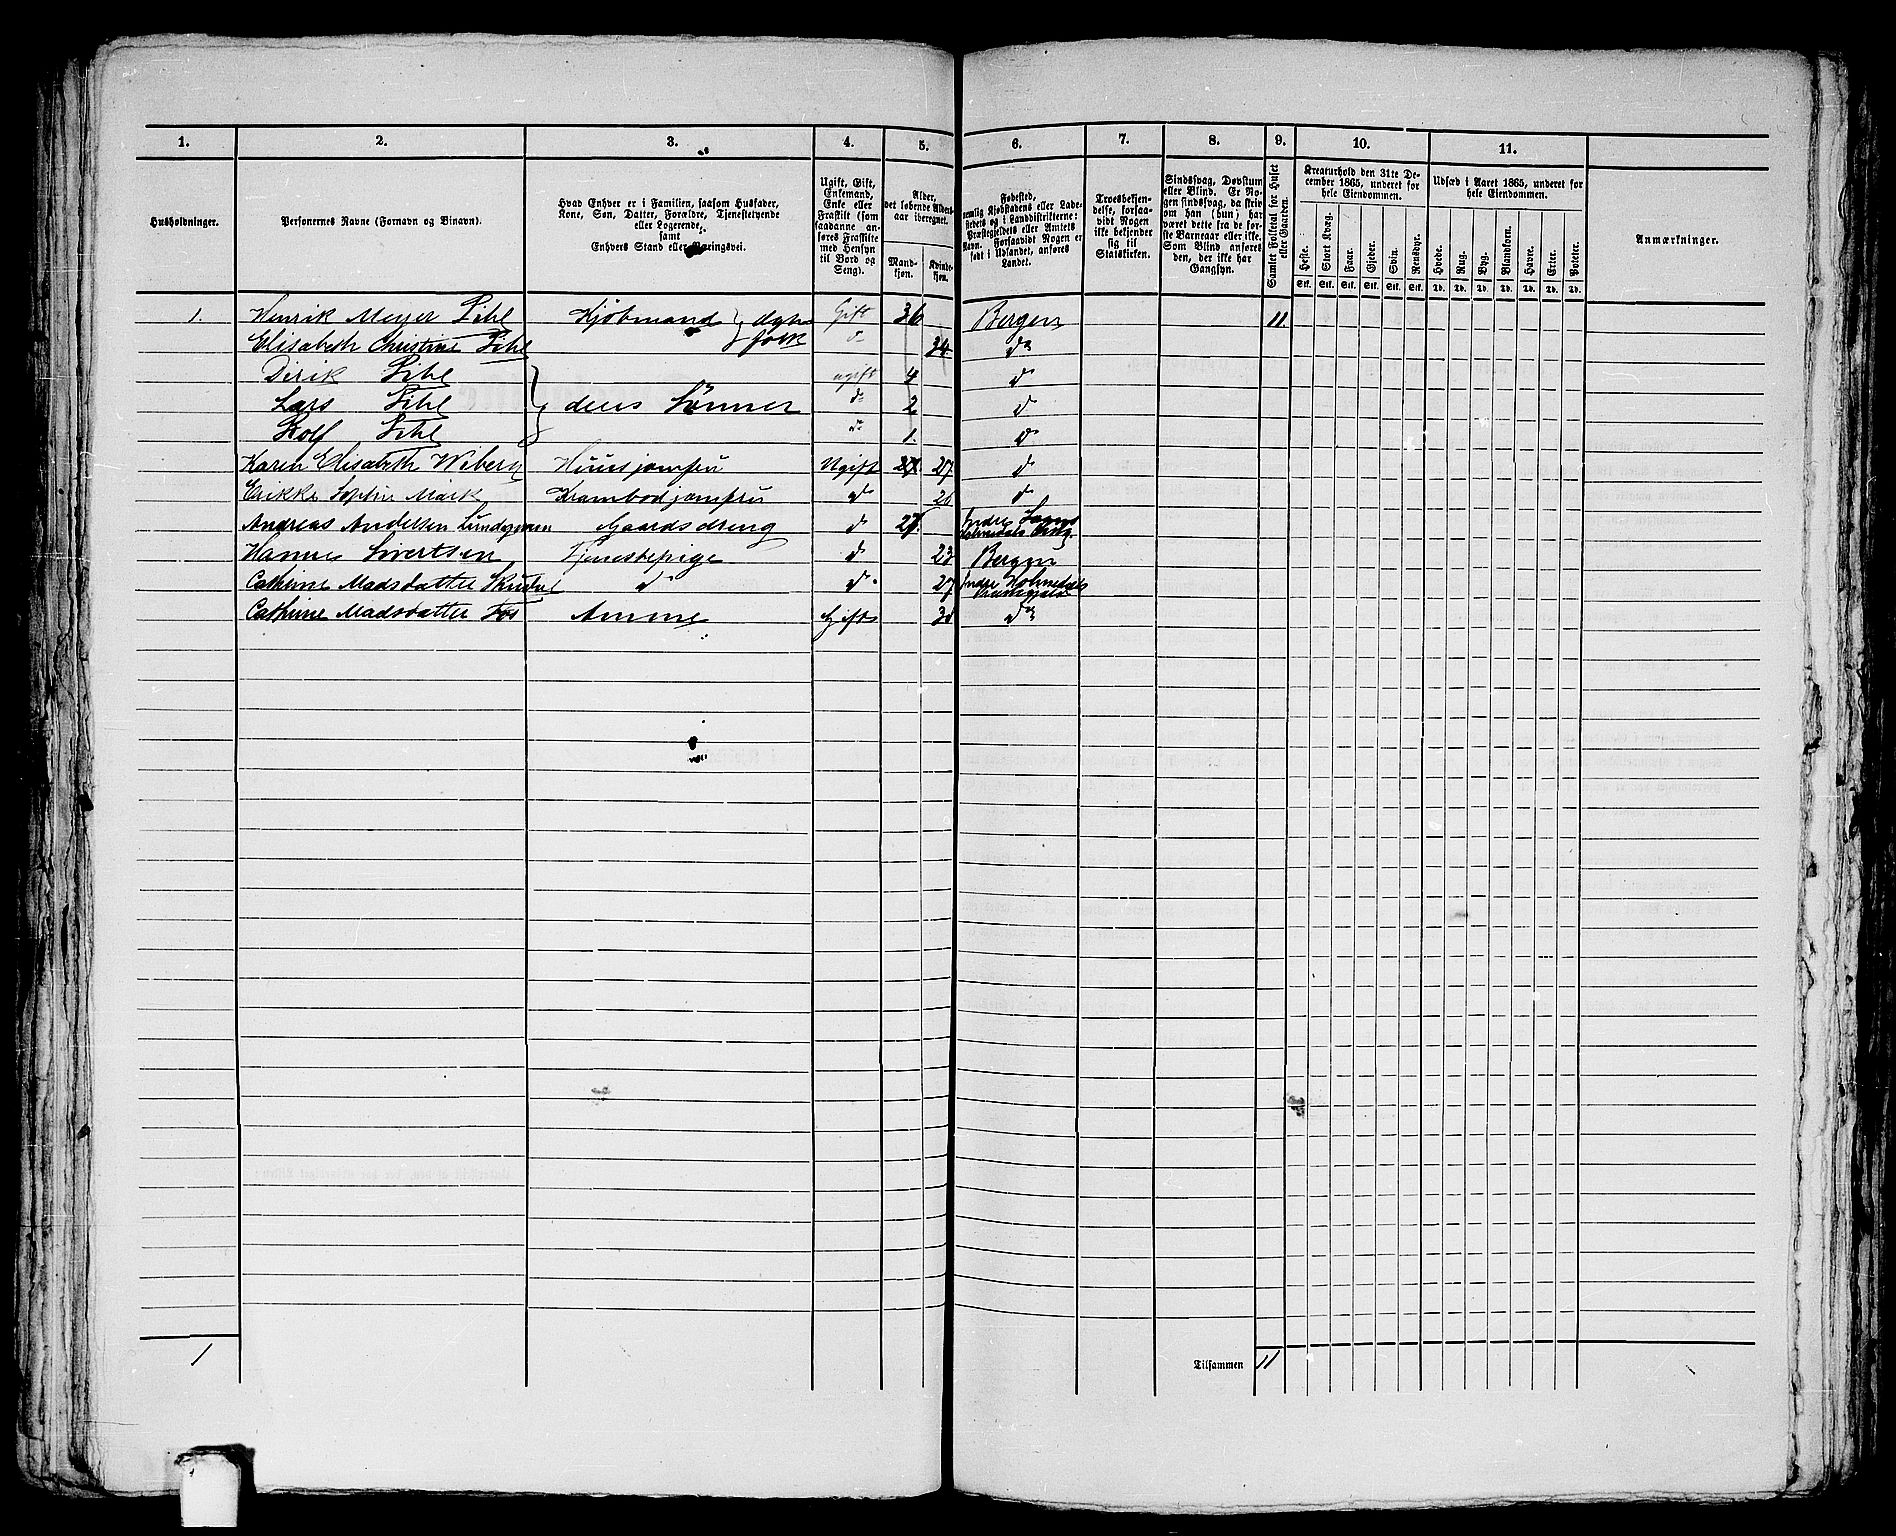 1. 2. 3. 4. 5. 6. 7. 8. 9. 10. 11.
Husholdninger.
Personernes Navne (Fornavn og Binavn).
Hvad Enhver er i Familien, saasom Husfader,
Kone, Søn, Datter, Forældre, Tjenestetyende
eller Logerende,
samt
Enhvers Stand eller Næringsvei.
Ugift, Gift,
Enkemand,
Enke eller
Fraskilt (som
saadanne an-
føres Fraskilte
med Hensyn
til Bord og
Seng).
Alder,
det løbende Alders-
aar iberegnet.
Mand-
kjøn.
Kvinde-
kjøn.
Fødested,
nemlig Kjøbstadens eller Lade-
stedets og i Landdistrikterne:
Præstegjeldets eller Amtets
Navn. Forsaavidt Nogen er
født i Udlandet, anføres
Landet.
Troesbekjen-
delse, forsaa-
vidt Nogen
ikke bekjender
sig til
Statskirken.
Sindssvag, Døvstum
eller Blind. Er No-
gen sindssvag, da skriv
om han (hun) har
været dette fra de før-
ste Barneaar eller ikke.
Som Blind anføres
den, der ikke har
Gangsyn.
Samlet Folketal for Huset
eller Gaarden.
Kreaturhold den 31te De-
cember 1865, underet for
hele Eiendommen.
Heste. Stort Kvæg. Faar. Gjeder. Svin. Rensdyr.
Stk. Stk. Stk. Stk. Stk. Stk.
Udsæd i Aaret 1865, underet for
hele Eiendommen.
Hvede. Rug. Byg. Blandkorn. Havre. Erter. Poteter.
Td. Td. Td. Td. Td. Td. Td.
Anmærkninger.
1. Henrik Meyer Pihl Kjøbmand } Ægte Gift 36 Bergen 11
Elisabeth Christine Pihl folk do 34 do
Dirik Pihl ugift 4 do
Lars Pihl } deres Sønner do 2 do
Rolf Pihl do 1. do
Karen Elisabeth Wiberg Huusjomfru Ugift 27 do
Erikke Sophie Mark Krambodjomfru do 26 do
Andreas Andersen Gaardsdreng do Indre
Hanne Sivertsen Tjenestepige do 23 Bergen
Cathrine Madsdatter do do 27 Indre Holmedals
Præstegjeld
Cathrine Madsdatter Fos Amme Gift do
1
Tilsammen 11